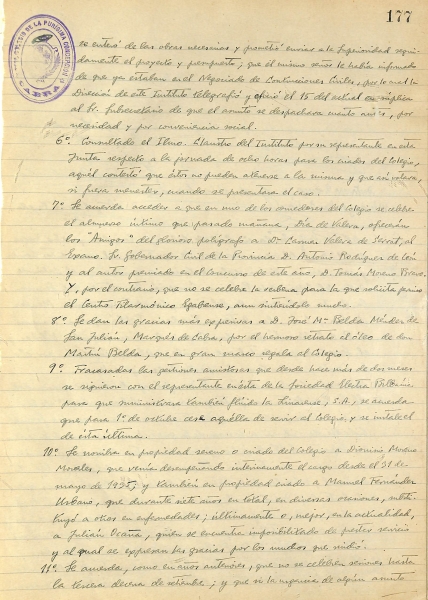 177
se enteró de las obras necesarias y prometió enviar a la Superioridad seguidamente el proyecto y presupuesto; que el mismo señor le había informado
de que ya estaban en el Negociado de Construcciones Civiles, por lo cual la
Dirección de este Instituto telegrafió y ofició el 15 del actual en súplica
al Sr. Subsecretario de que el asunto se despachara cuanto antes, por
necesidad y por conveniencia social.
6º. Consultado el Ilmo. Claustro del Instituto por su representante en esta
Junta respecto a la jornada de ocho horas para los criados del Colegio,
aquél contestó que éstos no pueden atenerse a la misma y que así votara,
si fuera menester, cuando se presentara el caso.
7º. Se acuerda acceder a que en uno de los comedores del Colegio se celebre
el almuerzo íntimo que pasado mañana, Día de Valera, ofrecerán
los "Amigos" del glorioso polígrafo a Dª Carmen Valera de Serrat, al
Excmo. Sr. Gobernador Civil de la Provincia D. Antonio Rodríguez de León
y al autor premiado en el Concurso de este año, D. Tomás Moreno Bravo.
Y, por el contrario, que no se celebre la verbena para la que solicita permiso
el Centro Filarmónico Egabrense, aun sintiéndolo mucho.
8º. Se dan las gracias más expresivas a D. José Mª Belda Méndez de
San Julián, Marqués de Cabra, por el hermoso retrato al óleo de don
Martín Belda, que en gran marco regala al Colegio.
9º. Fracasadas las gestiones amistosas que desde hace más de dos meses
se siguieron con el representante en ésta de la Sociedad Electra
para que suministrara también fluido la Linarense, S.A., se acuerda
que para 1º de octubre cese aquélla de servir el Colegio y se instale el
de ésta última.
10º. Se nombra en propiedad sereno o criado del Colegio a Dionisio Moreno
Morales, que venía desempeñando interinamente el cargo desde el 21 de
mayo de 1925; y también en propiedad criado a Manuel Fernández
Urbano, que durante siete años en total, en diversas ocasiones, substituyó a otros en enfermedades; últimamente o, mejor, en la actualidad,
a Julián Ocaña, quien se encuentra imposibilitado de prestar servicio
y al cual se expresan las gracias por los muchos que
11º. Se acuerda, como en años anteriores, que no se celebren sesiones hasta
la tercera decena de setiembre; y que si la urgencia de algún asunto